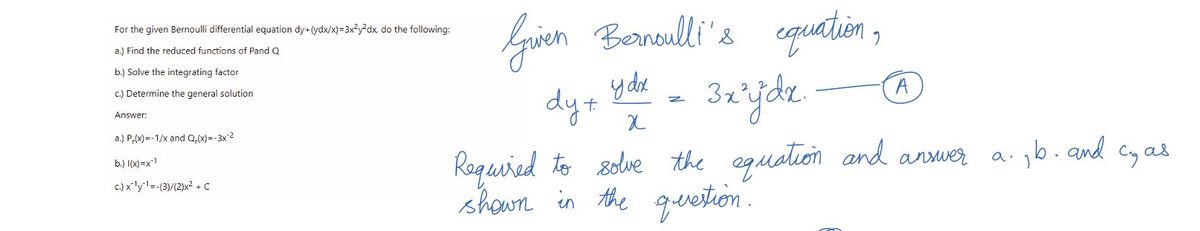 For the given Bernoulli differential equation dy+(ydx/x)=3x²y²dx, do the following:
a.) Find the reduced functions of Pand Q
b.) Solve the integrating factor
c.) Determine the general solution
Answer:
a.) Pᵣ(x)=-1/x and Qᵣ(x)=-3x⁻²
b.) I(x)=x⁻¹
c.) x⁻¹y⁻¹=-(3)/(2)x² + C
Given Bernoulli's equation,
dy + ydx/x = 3x²y²dx. — Ⓐ
Required to solve the equation and answer a., b. and c, as
shown in the question.